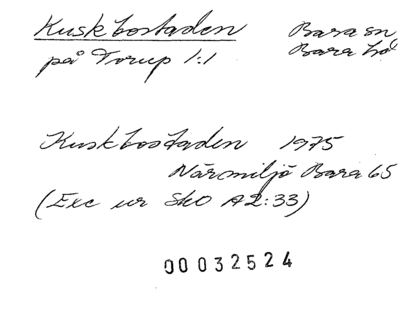 Kuskbostaden Bara sn
på Torup 1:1 Bara hd
Kuskbostaden 1975
Närmiljö Bara 65
(Exc ur SkO A2:33)
00032524